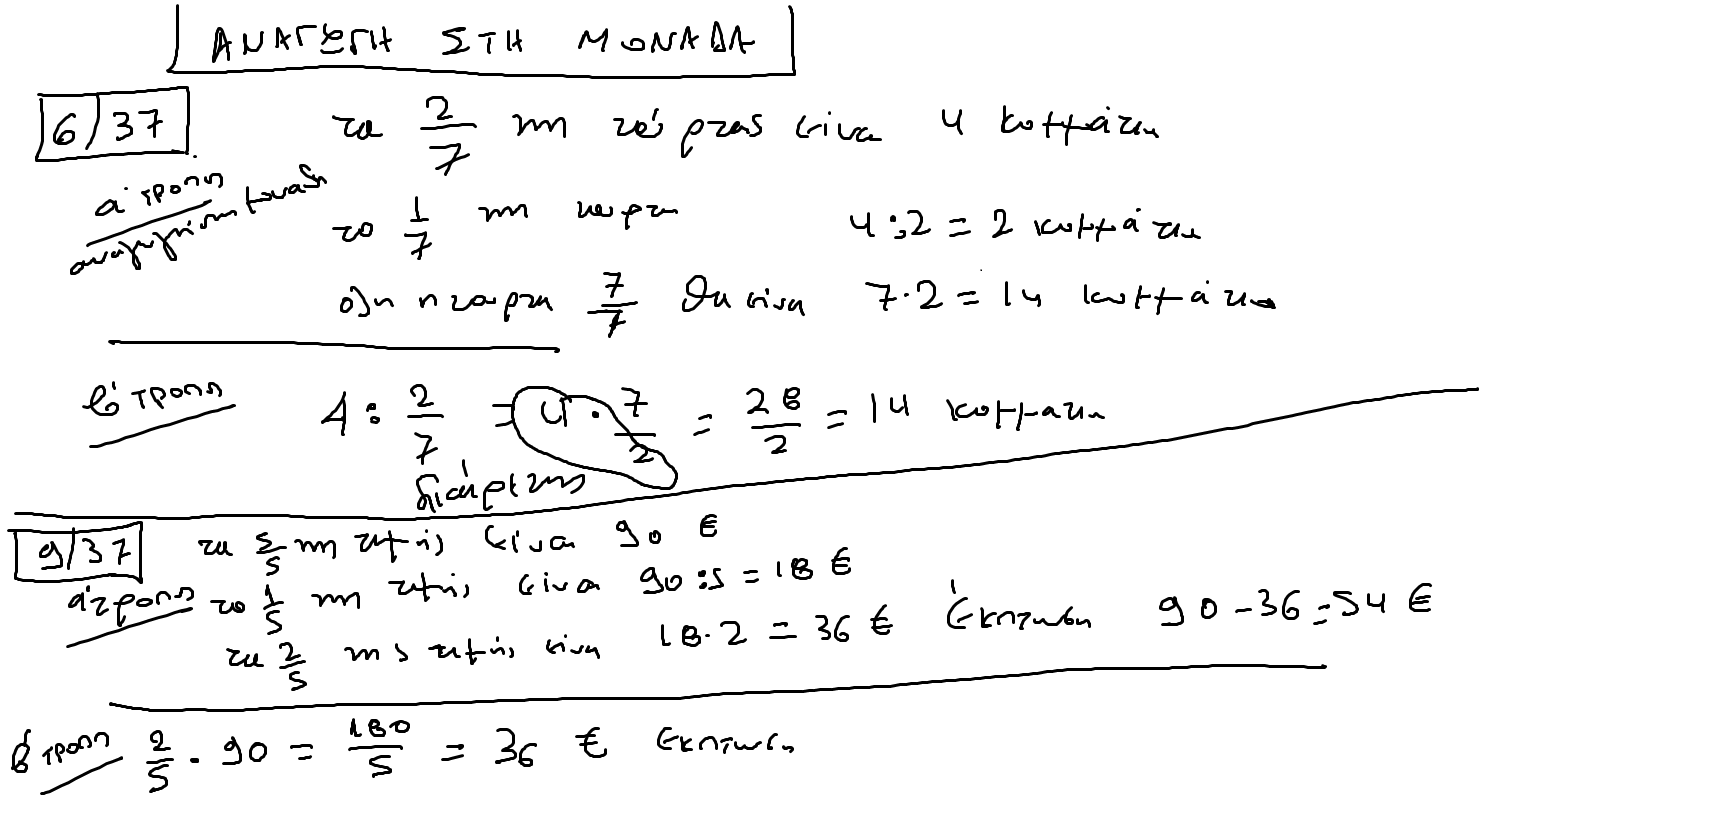 ΑΝΑΓΩΓΗ ΣΤΗ ΜΟΝΑΔΑ
6/37 τα 2/7 της τούρτας είναι 4 κομμάτια
α' τροπος
αναγωγή στη μοναδα
το 1/7 της τουρτα 4:2 = 2 κομμάτια
ολη η τουρτα 7/7 θα είναι 7·2 = 14 κομμάτια
β' τροπος 4 : 2/7 = 4 · 7/2 = 28/2 = 14 κομματια
διαίρεσης
9/37 τα 5/5 της τιμής είναι 90 €
α' τροπος το 1/5 της τιμής είναι 90:5 = 18 €
τα 2/5 της τιμής είναι 18·2 = 36 € έκπτωση 90-36=54 €
β' τροπος 2/5 · 90 = 180/5 = 36 € έκπτωση